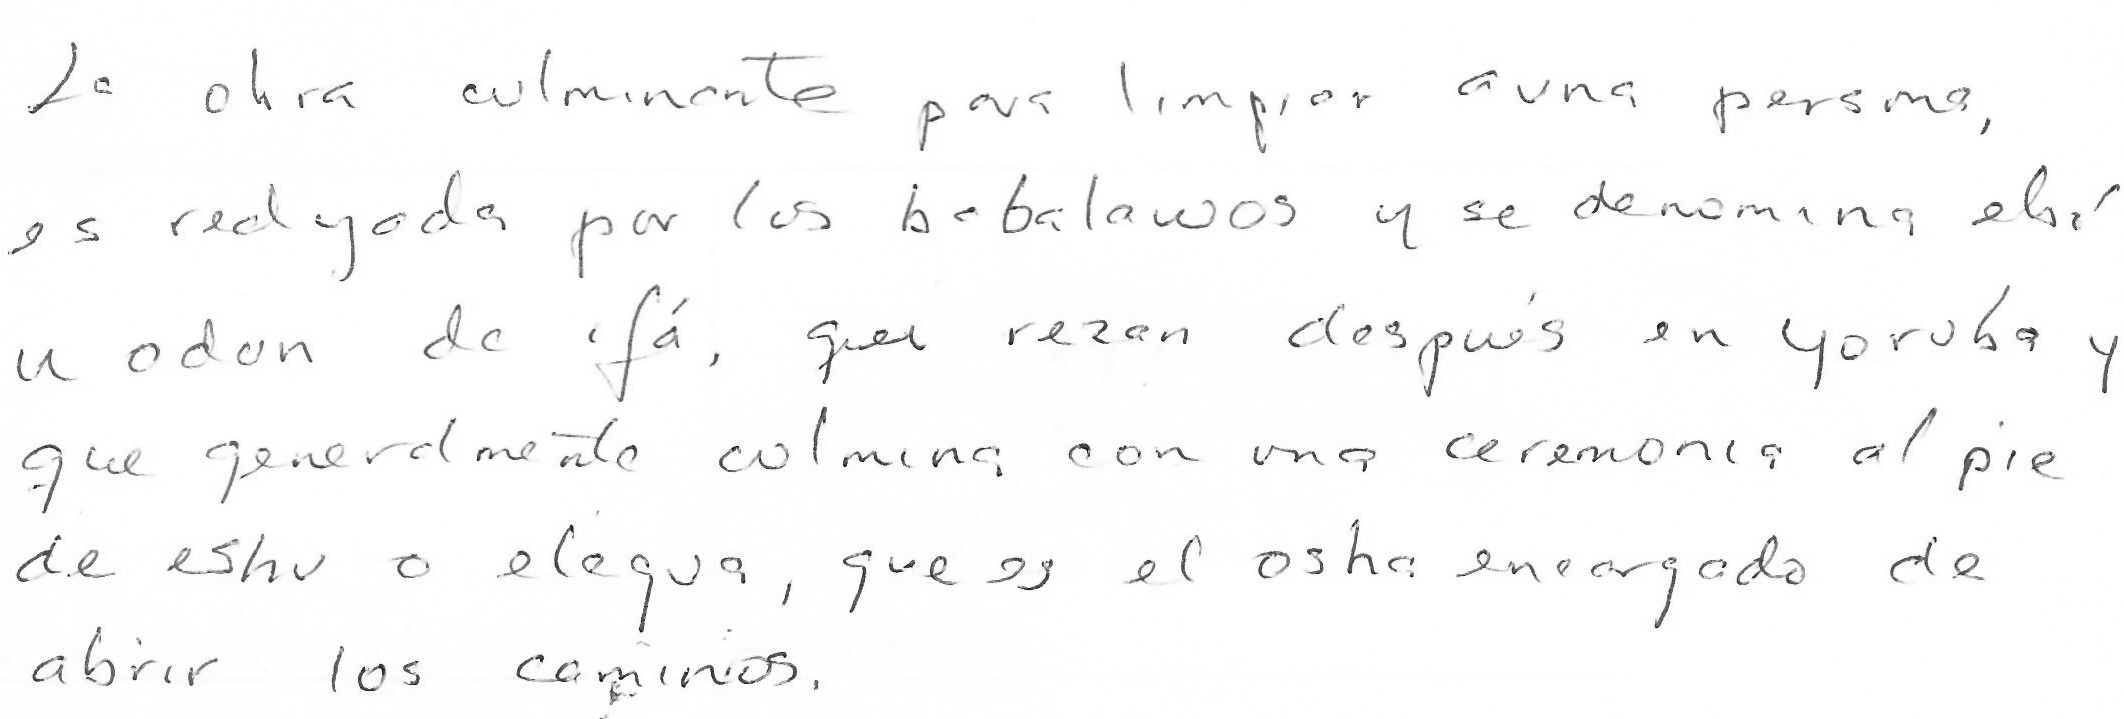 La obra culminante para limpiar a una persona,
es realizada por los babalawos y se denomina ebó
u odun de ifá, que rezan después en yoruba y
que generalmente culmina con una ceremonia al pie
de eshu o elegua, que es el osha encargado de
abrir los caminos.